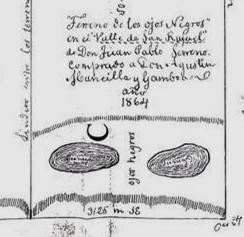 Terreno de los ojos Negros
en el "Valle de San Rafael"
de Don Juan Pablo Jereno.
Comprado a Don Agustin
Mancilla y Gamboa
año
1864
Lindero entre los terren
ojos negros
3125 m SE.